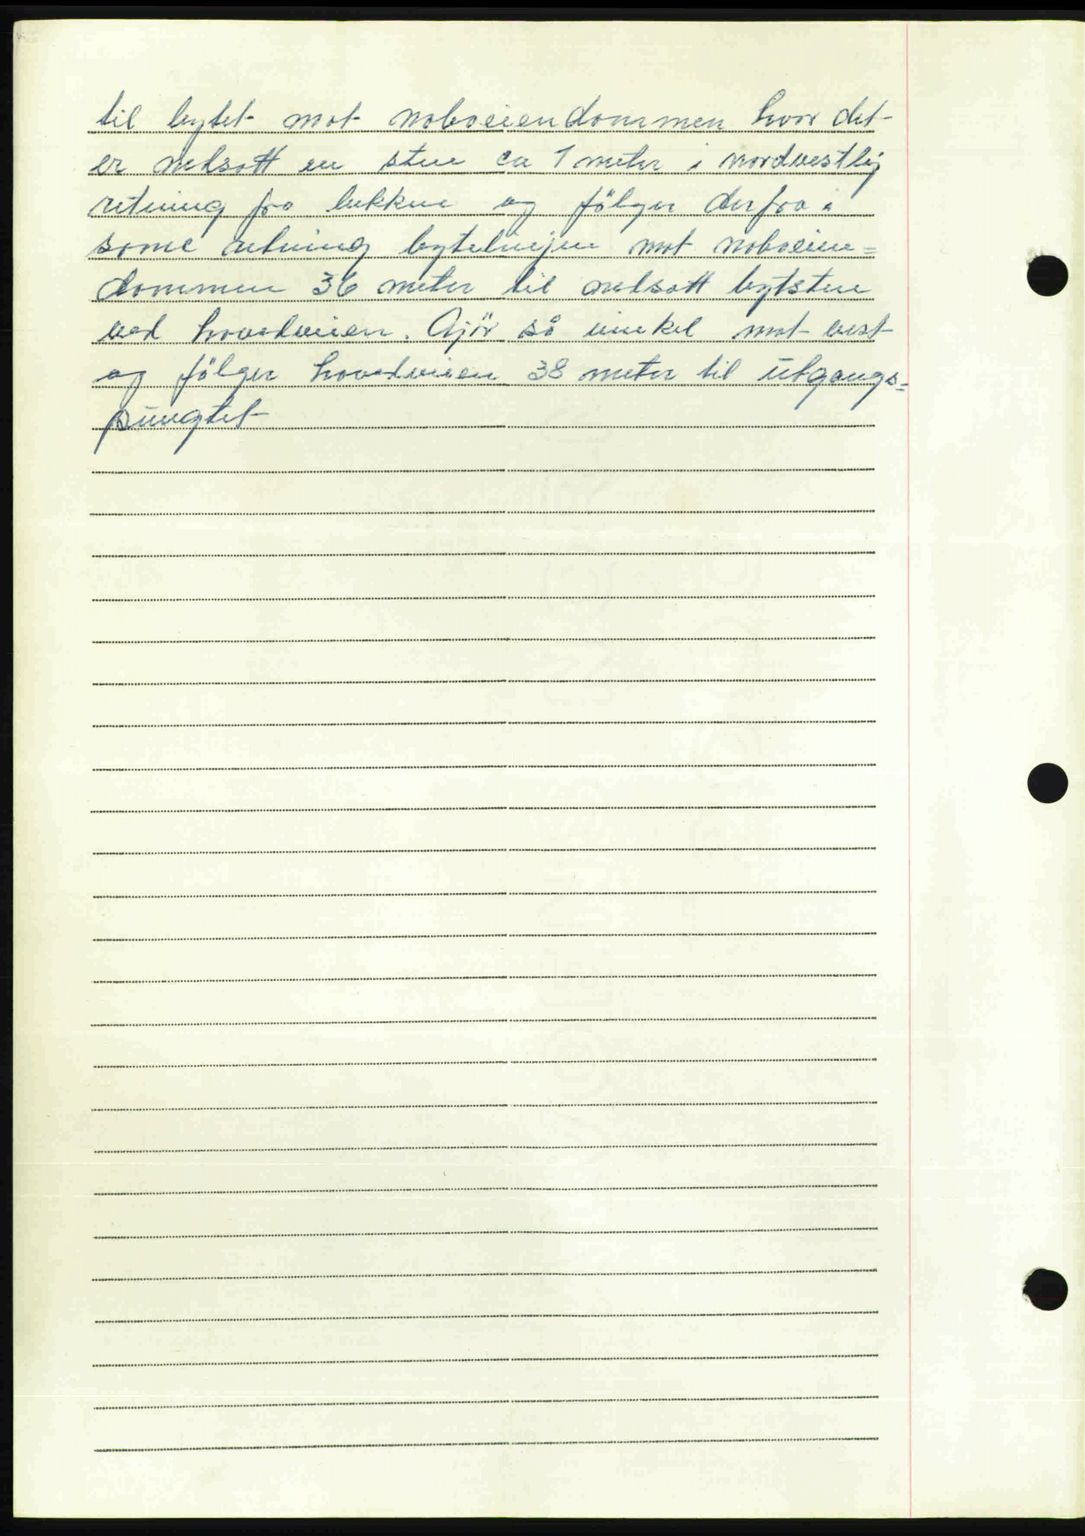 til bytet mot naboeiendommen hvor det
er nedsatt en sten ca 1 meter i nordvestlig
retning fra bekken og følger derfra i
same retning bytelinjen mot naboeien=
dommen 36 meter til nedsatt bytsten
ved hovedveien. Gjör så vinkel mot vest
og følger hovedveien 38 meter til utgangs=
pungtet